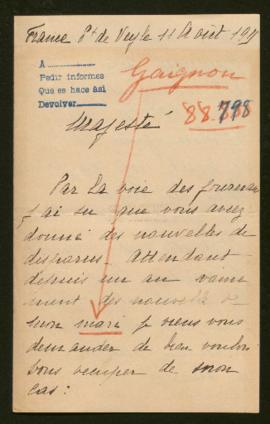 France Pt de Veyle 11 Août 191
A
Pedir informes
Que se hace así
Devolver
Gaignon
88.798
Majesté
Par la voie des journaux
j'ai su que vous aviez
donné des nouvelles de
disparus Attendant
depuis un an vaine
ment des nouvelle de
mon mari je viens vous
demander de bien vouloir
vous occuper de mon
cas :